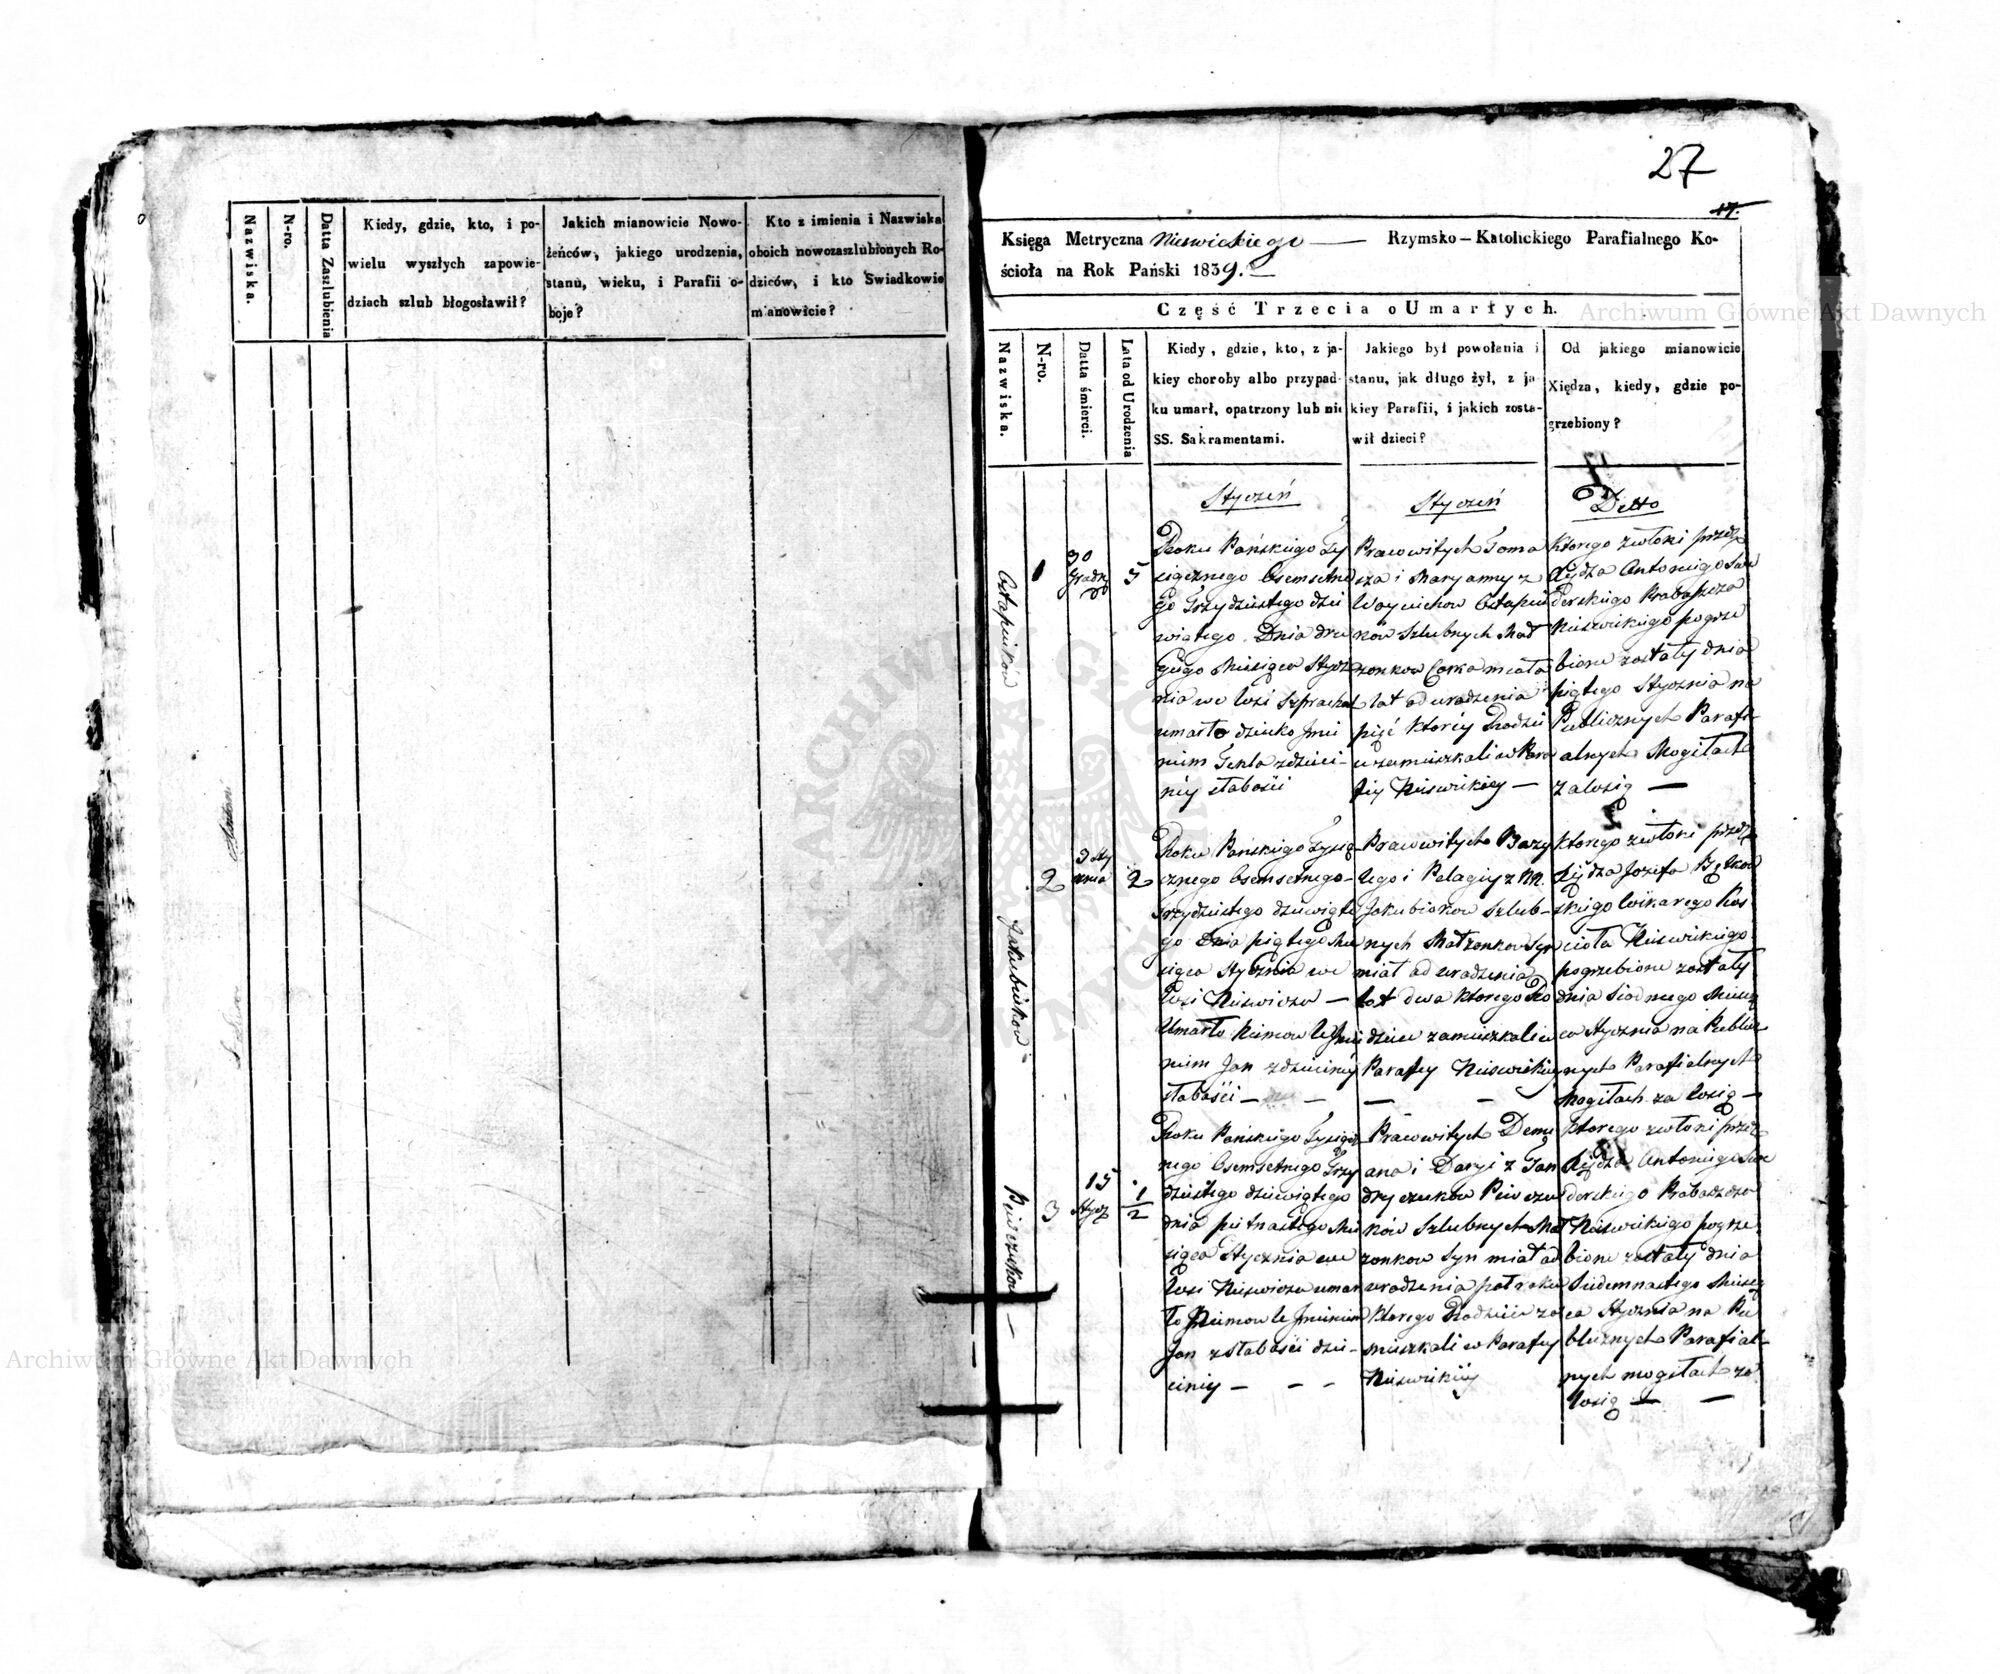 Nazwiska.
N-ro.
Datta Zaszlubienia
Kiedy, gdzie, kto, i po-
wielu wyszłych zapowie-
dziach szlub błogosławił?
Jakich mianowicie Nowo-
żeńców, jakiego urodzenia,
stanu, wieku, i Parafii o-
boje?
Kto z imienia i Nazwiska
oboich nowozaszlubionych Ro-
dziców, i kto Swiadkowie
mianowicie?
27
17.
Księga Metryczna Niświckiego — Rzymsko-Katolickiego Parafialnego Ko-
ścioła na Rok Pański 1839.
Część Trzecia o Umarłych.
Nazwiska.
N-ro.
Datta śmierci.
Lata od Urodzenia
Kiedy, gdzie, kto, z ja-
kiey choroby albo przypad-
ku umarł, opatrzony lub nie
SS. Sakramentami.
Jakiego był powołania i
stanu, jak długo żył, z ja-
kiey Parafii, i jakich zosta-
wił dzieci?
Od jakiego mianowicie
Xiędza, kiedy, gdzie po-
grzebiony?
Ostapiuków
1
30
Grudn
5
Styczeń
Roku Pańskiego Ty
siącznego Osemsetne
go Trzydziestego dzie
wiątego Dnia dru
giego Miesiąca Stycz
nia we Wsi
umarło dziecko Jmie
niem Tekla z dzieci-
nney słabości
Styczeń
Pracowitych Toma
sza i Maryanny z
Woyciuchow Ostapiu
ków Szlubnych Mał
żonkow Corka miała
lat od urodzenia
pięć ktorey Rodzi
ce zamieszkali w Para
fiy Niświckiey —
Detto
Ktorego zwłoki przez
Xiędza Antoniego San
derskiego Probaszcza
Niświckiego pogrze
bione zostały dnia
piątego Stycznia na
Publicznych Parafi-
alnych Mogiłach
za wsią —
Jakubiukow
2
3 Sty
cznia
2
Roku Pańskiego Tysią-
cznego Osemsetnego-
Trzydziestego dziewiąte
go Dnia piątego Mie
siąca Stycznia we
Wsi Niświczu —
Umarło Niemowle Jmie
niem Jan z dziecinney
słabości — —
Pracowitych Bazy
lego i Pelagiy z NN.
Jakubiukow Szlub-
nych Małżonkow Syn
miał od urodzenia
lat dwa ktorego Ro
dzice zamieszkali w
Parafiy Niświckiey
— —
Ktorego zwłoki przez
Xiędza Jozefa
skiego Wikarego Koś
cioła Niświckiego
pogrzebione zostały
dnia siodmego Miesią
ca Stycznia na Publicz
nych Parafialnych
Mogiłach za wsią —
3
15
Stycz
1/2
Roku Pańskiego Tysiącz
nego Osemsetnego Trzy
dziestego dziewiątego
dnia piętnastego Mie
siąca Stycznia we
Wsi Niświczu umar
ło Niemowle Jmieniem
Jan z słabości dzie-
cinney — — —
Pracowitych Demi
ana i Daryi z
ków Szlubnych Mał
żonkow Syn miał od
urodzenia poł roku
Ktorego Rodzice za
mieszkali w Parafiy
Niświckiey
Ktorego zwłoki przez
Xiędza Antoniego San
derskiego Probaszcza
Niświckiego pogrze
bione zostały dnia
Siedemnastego Miesią
ca Stycznia na Pu
blicznych Parafial-
nych mogiłach za
wsią — —
Archiwum Główne Akt Dawnych
Archiwum Główne Akt Dawnych